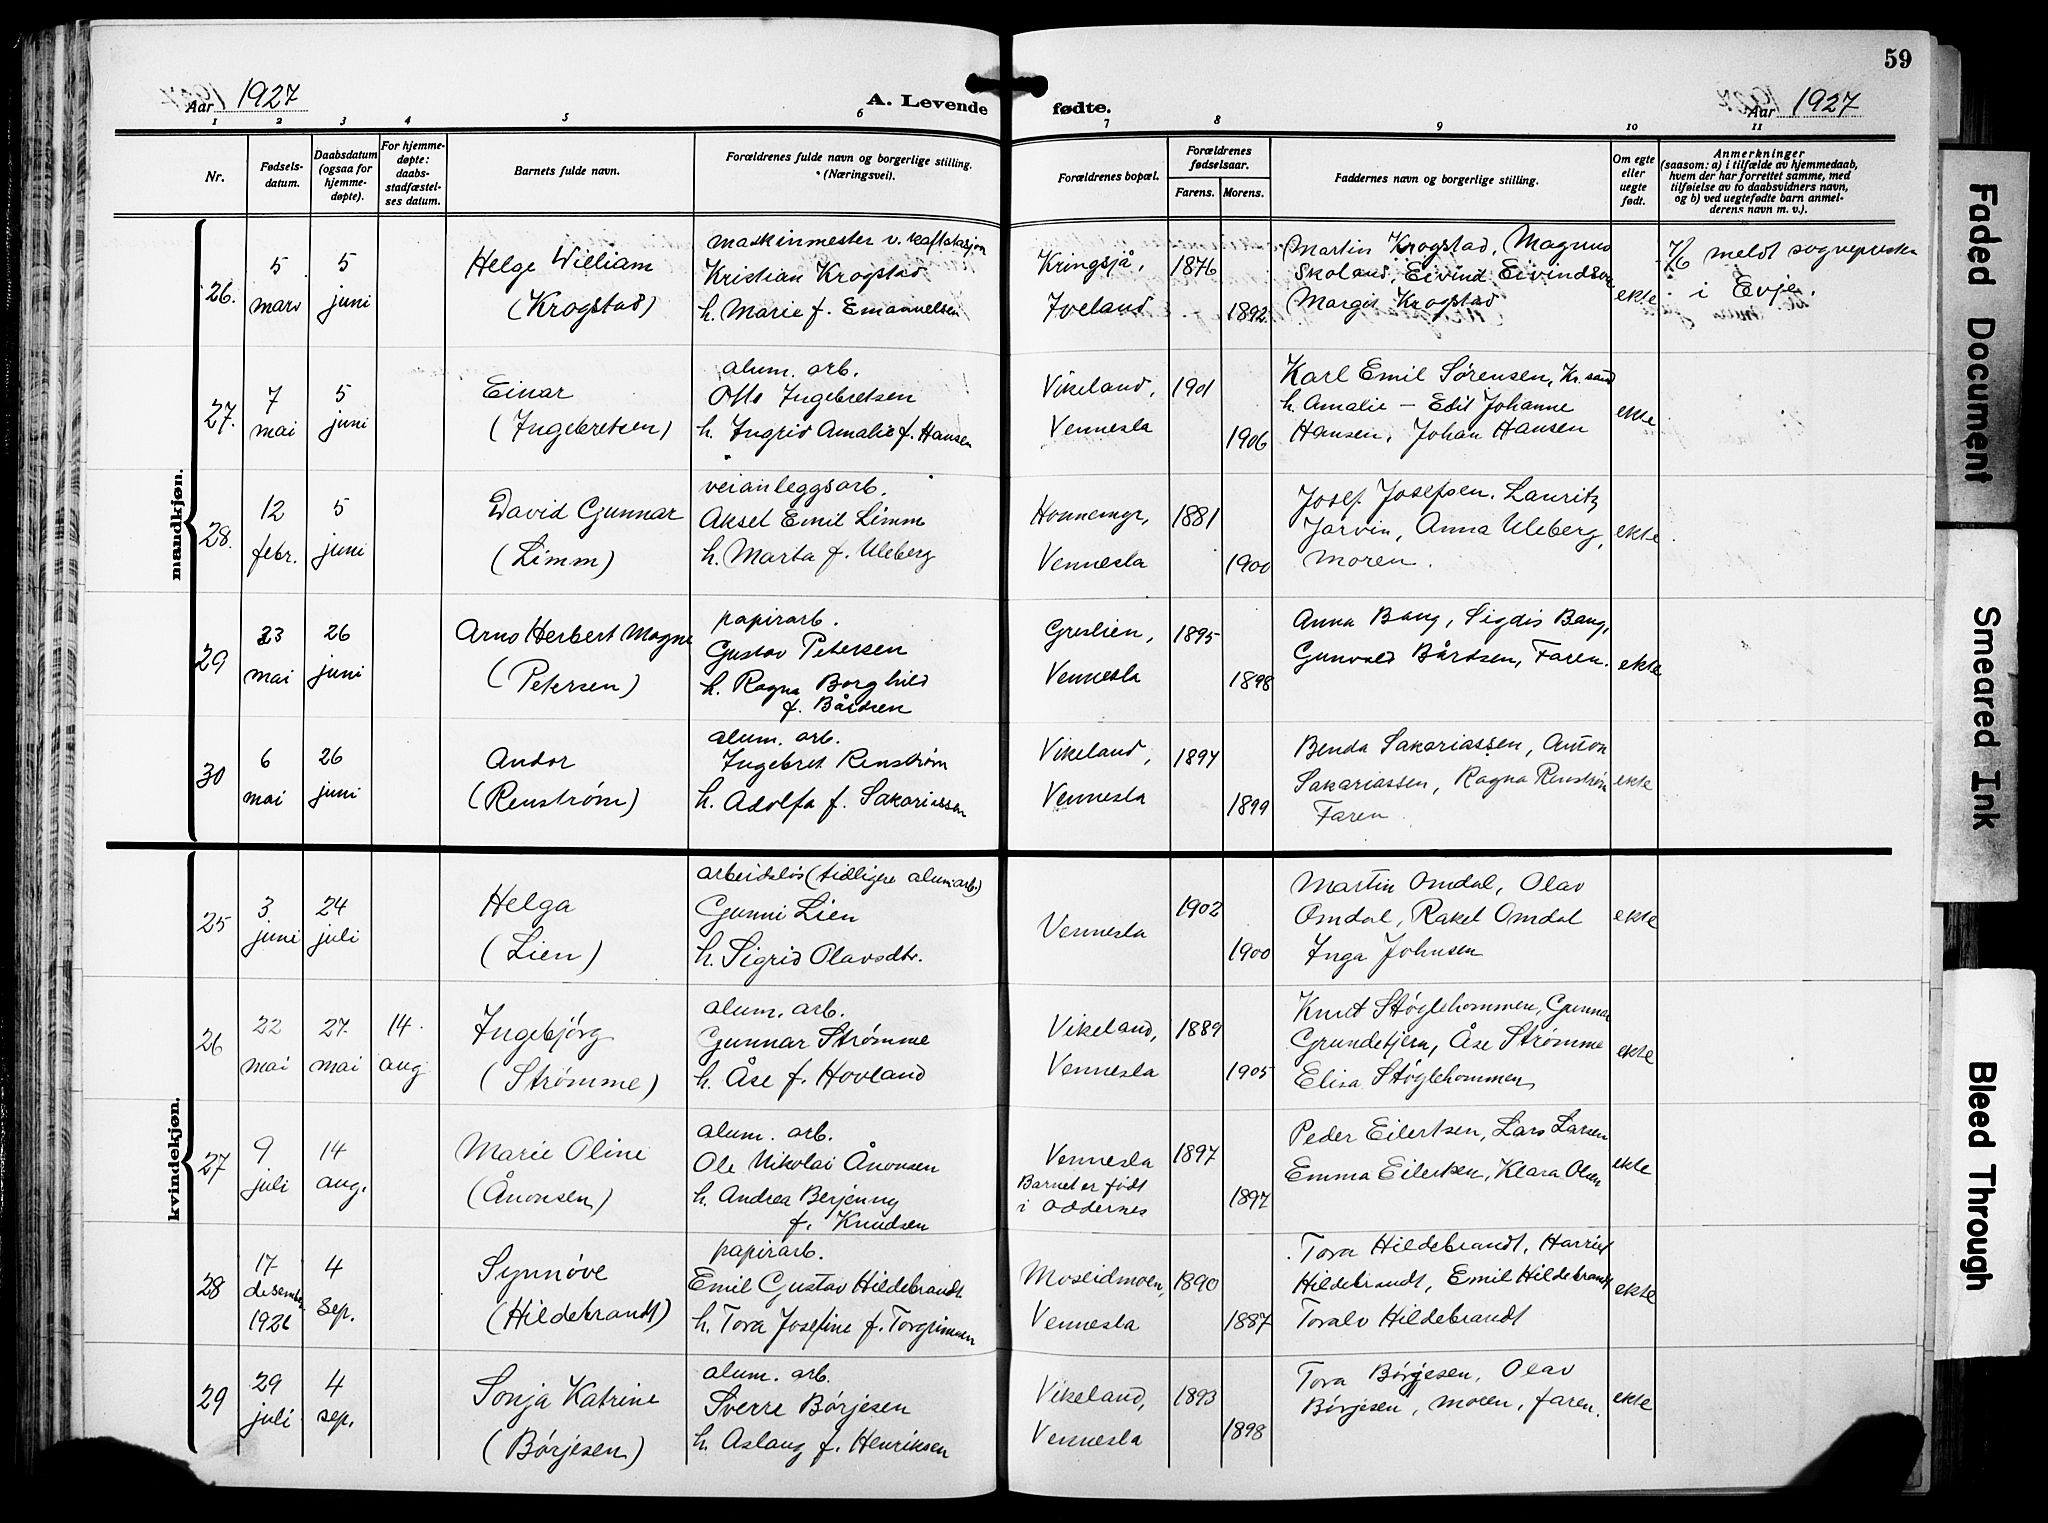 59
Aar 1927
A. Levende fødte.
Aar 1927
1 2 3 4 5 6 7 8 9 10 11
Nr.
Fødsels-
datum.
Daabsdatum
(ogsaa for
hjemme-
døpte).
For hjemme-
døpte:
daabs-
stadfæstel-
ses datum.
Barnets fulde navn.
Forældrenes fulde navn og borgerlige stilling.
(Næringsvei).
Forældrenes bopæl.
Forældrenes
fødselsaar.
Farens. Morens.
Faddernes navn og borgerlige stilling.
Om egte
eller
uegte
født.
Anmerkninger
(saasom: a) i tilfælde av hjemmedaab,
hvem der har forrettet samme, med
tilføielse av to daabsvidners navn,
og b) ved uegtefødte barn anmel-
derens navn m. v.).
mandkjøn.
26.
5
mars
5
juni
Helge William
(Krogstad)
maskinmester v. kraftstasjon
Kristian Krogstad
h. Marie f. Emanuelsen
Kringsjå,
Iveland
1876
1892
Martin Krogstad, Magnus
Skoland, Eivind Eivindson
Margit Krogstad
ekte
7/6 meldt sognepresten
i Evje.
27.
7
mai
5
juni
Einar
(Ingebretsen)
alum. arb.
Otto Ingebretsen
h. Ingrid Amalie f. Hansen
Vikeland,
Vennesla
1901
1906
Karl Emil Sørensen, Kr.sand
h. Amalie — Edit Johanne
Hansen, Johan Hansen
ekte
28.
12
febr.
5
juni
David Gunnar
(Limm)
veianleggsarb.
Aksel Emil Limm
h. Marta f. Uleberg
Honnemyr,
Vennesla
1881
1900
Josef Josefsen, Lauritz
Jarvin, Anna Uleberg,
moren.
ekte
29
23
mai
26
juni
Arno Herbert Magne
(Petersen)
papirarb.
Gustav Petersen
h. Ragna Borghild
f. Bårdsen
Greslien,
Vennesla
1895
1898
Anna Bang, Sigdis Bang,
Gunvald Bårdsen, Faren.
ekte
30
6
mai
26
juni
Andor
(Renstrøm)
alum. arb.
Ingebret Renstrøm
h. Adolfa f. Sakariassen
Vikeland,
Vennesla
1897
1899
Benda Sakariassen, Anton
Sakariassen, Ragna Renstrøm
Faren
ekte
kvindekjøn.
25
3
juni
24
juli
Helga
(Lien)
arbeidsløs (tidligere alum.arb.)
Gunni Lien
h. Sigrid Olavsdtr.
Vennesla
1902
1900
Martin Omdal, Olav
Omdal, Rakel Omdal
Inga Johnsen
ekte
26
22
mai
27
mai
14
aug
Ingebjörg
(Strømme)
alum. arb.
Gunnar Strømme
h. Åse f. Hovland
Vikeland,
Vennesla
1889
1905
Knut Støglehommen, Gunnar
Grundetjern, Åse Strømme
Elisa Støglehommen
ekte
27
9
juli
14
aug.
Marie Oline
(Ånonsen)
alum. arb.
Ole Nikolai Ånonsen
h. Andrea Berjenny
f. Knudsen
Vennesla
Barnet er født
i Oddernes
1897
1897
Peder Eilertsen, Lars Larsen
Emma Eilertsen, Klara Olsen
ekte
28
17
desember
1926
4
sep.
Synnøve
(Hildebrandt)
papirarb.
Emil Gustav Hildebrandt
h. Tora Josefine f. Torgrimsen
Moseidmoen,
Vennesla
1890
1887
Tora Hildebrandt, Harriet
Hildebrandt, Emil Hildebrandt
Toralv Hildebrandt
ekte
29
29
juli
4
sep.
Sonja Katrine
(Børjesen)
alum. arb.
Sverre Børjesen
h. Aslaug f. Henriksen
Vikeland,
Vennesla
1893
1898
Tora Børjesen, Olav
Børjesen, moren, faren.
ekte
Faded Document
Smeared Ink
Bleed Through